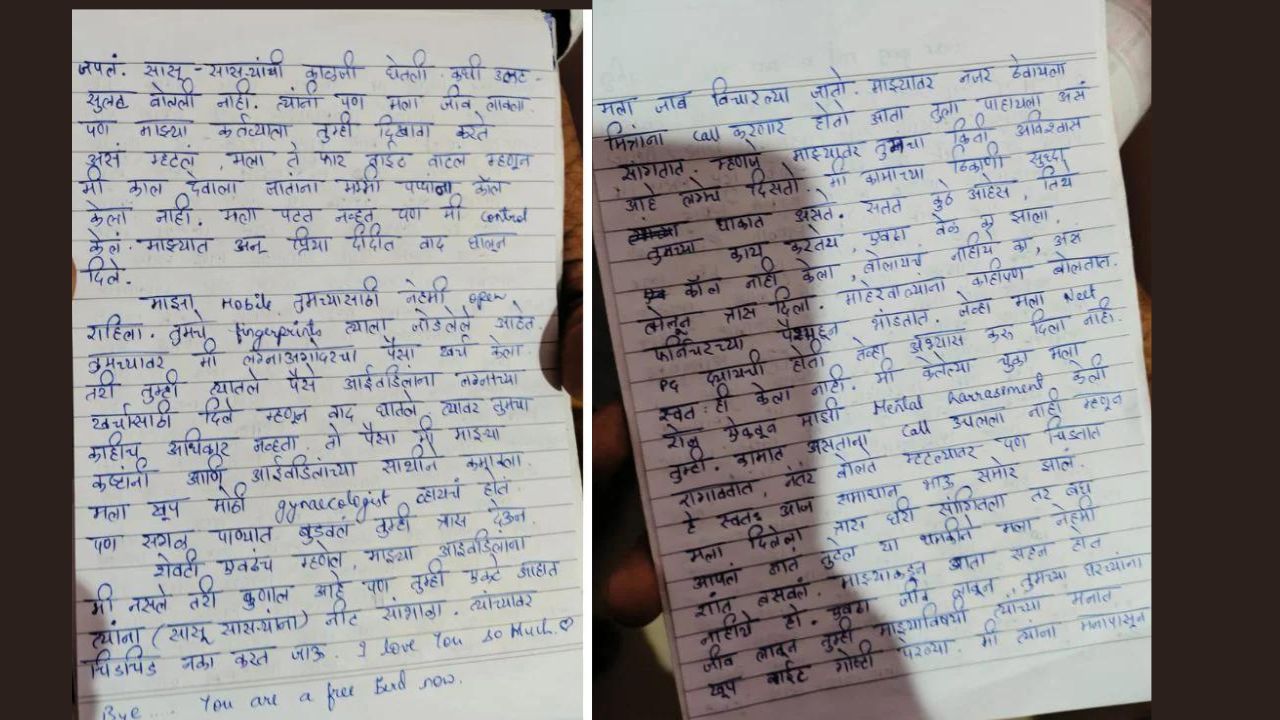 जपतं. सासू-सासऱ्यांची काळजी घेतली. कधी उलट-
सुलट बोलली नाही. त्यांनी पण मला जीव लावला
पण माझ्या कर्तव्याला तुम्ही दिखावा करते
असं म्हटलं. मला ते फार वाईट वाटलं म्हणून
मी काल देवाला जाताना मम्मी पप्पांना कॉल
केला नाही. मला पटत नव्हतं पण मी control
केलं. माझ्यात अनू प्रिया दीदीत वाद घालून
दिले.
माझा Mobile तुमच्यासाठी नेहमी open
राहिला. तुमचे fingerprints त्याला जोडलेले आहेत.
तुमच्यावर मी लग्नाअगोदरचा पैसा खर्च केला
तरी तुम्ही त्यातले पैसे आईवडिलांना लग्नाच्या
खर्चासाठी दिले म्हणून वाद घातले त्यावर तुमचा
काहीच अधिकार नव्हता. तो पैसा मी माझ्या
कष्टांनी आणि आईवडिलांच्या साथीने कमावला.
मला खूप मोठी gynaecologist व्हायचं होतं.
पण सगळं पाण्यात बुडवलं तुम्ही त्रास देऊन.
शेवटी एवढंच म्हणेल, माझ्या आईवडिलांना
मी नसले तरी कुणाल आहे पण तुम्ही एकटे आहात
त्यांना (सासू सासऱ्यांना) नीट सांभाळा. त्यांच्यावर
चिडचिड नका करत जाऊ. I love You so Much. ♡
Bye .... You are a free Bird now.
मला जाब विचारल्या जातो. माझ्यावर नजर ठेवायला
मित्रांना call करणार होतो आता तुला पाहायला असं
सांगतात. म्हणजे माझ्यावर तुमचा किती अविश्वास
आहे लगेच दिसतो. मी कामाच्या ठिकाणी सुद्धा
तुमच्या धाकात असते. सतत कुठे आहेस, तिथे
काय करतेय, एवढा वेळ का झाला.
कॉल नाही केला, बोलायचं नाहीय का, असं
बोलून त्रास दिला. माहेरच्यांना काहीपण बोलतात.
फर्निचरच्या पैश्याहून भांडतात. जेव्हा मला Neet
PG द्यायची होती तेव्हा अभ्यास करू दिला नाही.
स्वतः ही केला नाही. मी केलेल्या चुका मला
रोज ऐकवून माझी Mental harrasment केली
तुम्ही. कामात असताना call उचलला नाही म्हणून
रागावतात, नंतर बोलते म्हटल्यावर पण चिडतात
हे स्वतः आज समाधान भाऊ समोर झालं.
मला दिलेला त्रास घरी सांगितला तर बघ
आपलं नातं तुटेल या धमकीने मला नेहमी
शांत बसवलं. माझ्याकडून आता सहन होत
नाहीये हो. एवढा जीव लावून, तुमच्या घरच्यांना
जीव लावून तुम्ही माझ्याविषयी त्यांच्या मनात
खूप वाईट गोष्टी पेरल्या. मी त्यांना मनापासून